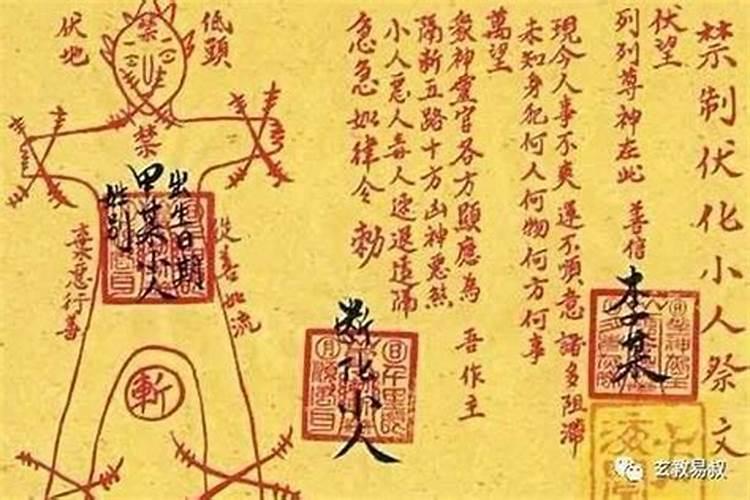 禁制伏化小人祭文
伏望
列列尊神在此 善信
李某
現今人事不爽 運不順意 諸多阻滯
未知身犯何人何物何方何事
萬望
眾神靈官各方顯應為 吾作主
隔断五路十方凶神惡煞
小人惡人毒人速退遠隔
急急如律令 勅
断化小人
低頭
伏地
禁
禁
出生日期
甲某小人
姓别
從善如流
棄惡行善
斬
玄教易叔